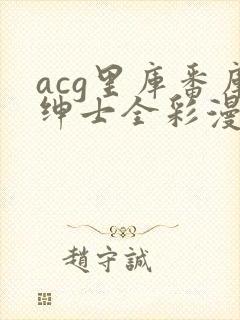 acg里库番库
绅士全彩漫
趙守誠